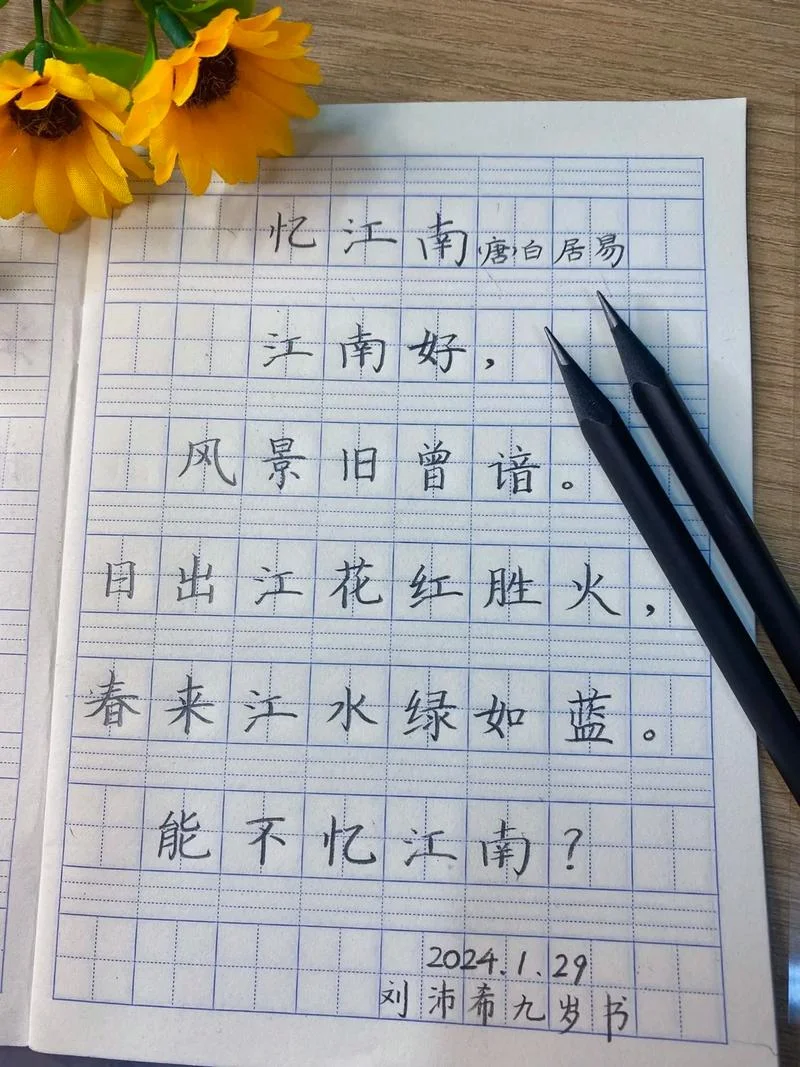 忆江南(唐)白居易
江南好，
风景旧曾谙。
日出江花红胜火，
春来江水绿如蓝。
能不忆江南？
2024.1.29
刘沛希九岁书